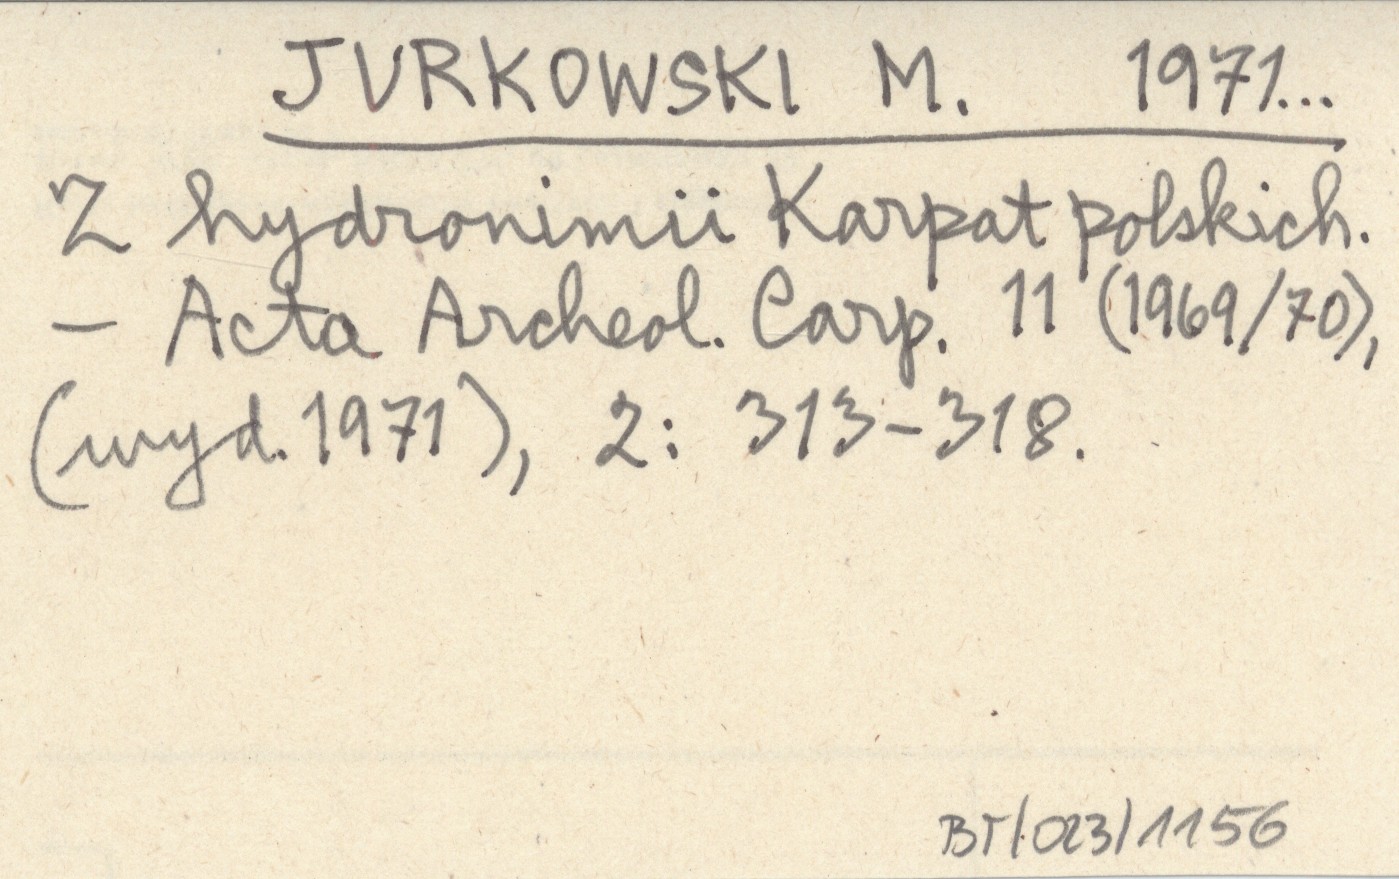 JURKOWSKI M. 1971...
Z hydronimii Karpat polskich.
– Acta Archeol. Carp. 11 (1969/70),
(wyd. 1971), 2: 313–318.
BT/023/1156